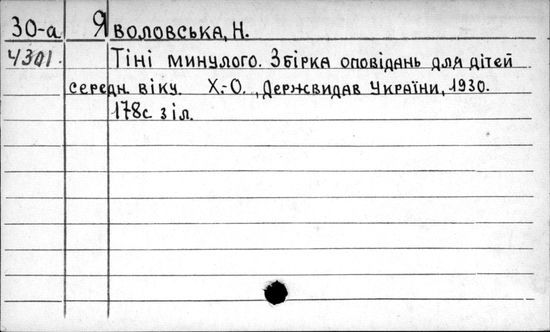 30-а Яволовська, Н.
4301. Тіні минулого. Збірка оповідань для дітей
середн. віку. Х.-О., Держвидав України, 1930.
178с з іл.